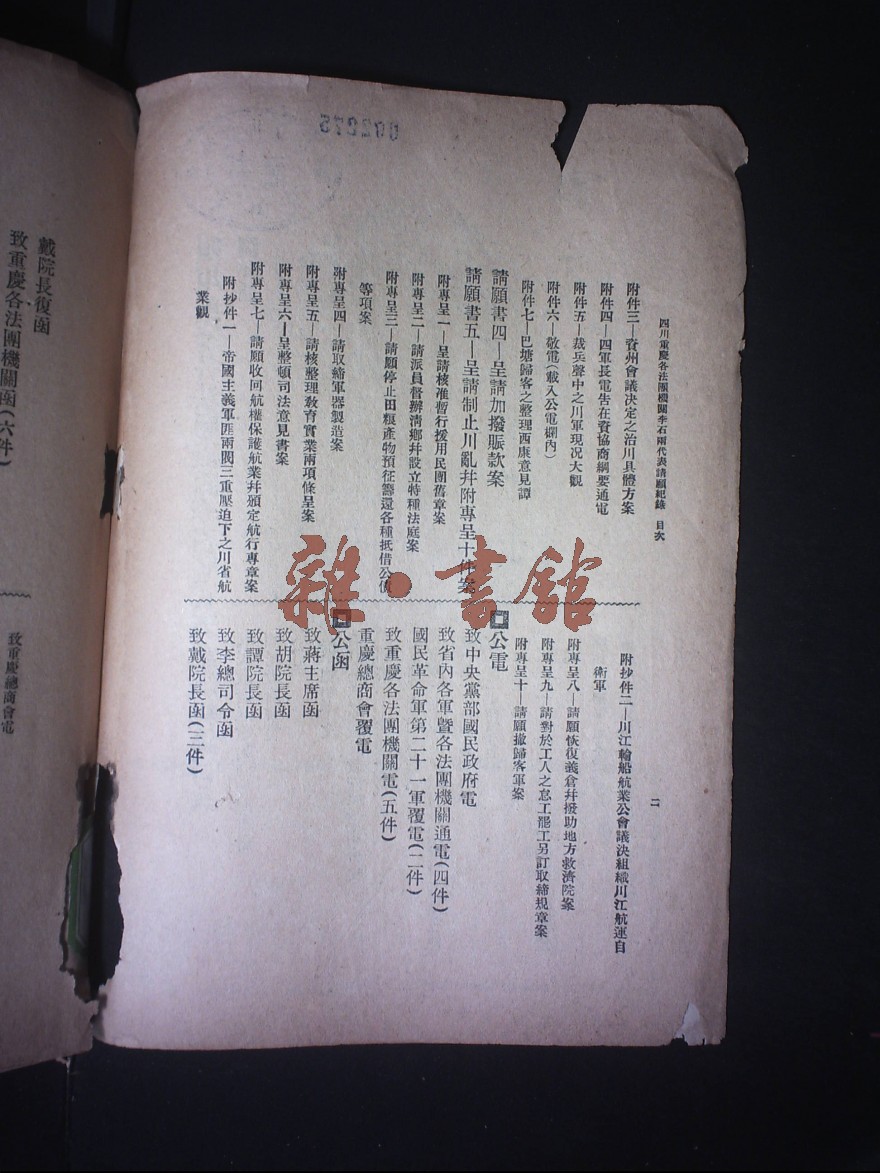 四川重慶各法團機關李石兩代表請願紀錄 目次
二
附件三—資州會議决定之治川具體方案
附件四—四軍長電告在資協商綱要通電
附件五—裁兵聲中之川軍現况大觀
附件六—敬電(載入公電欄內)
附件七—巴塘歸客之整理西康意見譚
請願書四—呈請加撥賑款案
請願書五—呈請制止川亂幷附專呈十件案
附專呈一—呈請核准暫行援用民團舊章案
附專呈二—請派員督辦淸鄉幷設立特種法庭案
附專呈三—請願停止田糧產物預征籌還各種抵借公債
等項案
附專呈四—請取締軍器製造案
附專呈五—請核整理敎育實業兩項條呈案
附專呈六—呈整頓司法意見書案
附專呈七—請願收回航權保護航業幷頒定航行專章案
附抄件一—帝國主義軍匪兩閥三重壓迫下之川省航
業觀
附抄件二—川江輪船航業公會議決組織川江航運自
衛軍
附專呈八—請願恢復義倉幷撥助地方救濟院案
附專呈九—請對於工人之怠工罷工另訂取締規章案
附專呈十—請願撤歸客軍案
公電
致中央黨部國民政府電
致省內各軍暨各法團機關通電(四件)
國民革命軍第二十一軍覆電(二件)
致重慶各法團機關電(五件)
重慶總商會覆電
公函
致蔣主席函
致胡院長函
致譚院長函
致李總司令函
致戴院長函(三件)
戴院長復函
致重慶各法團機關函(六件)
致重慶總商會電
002275
雜·書館